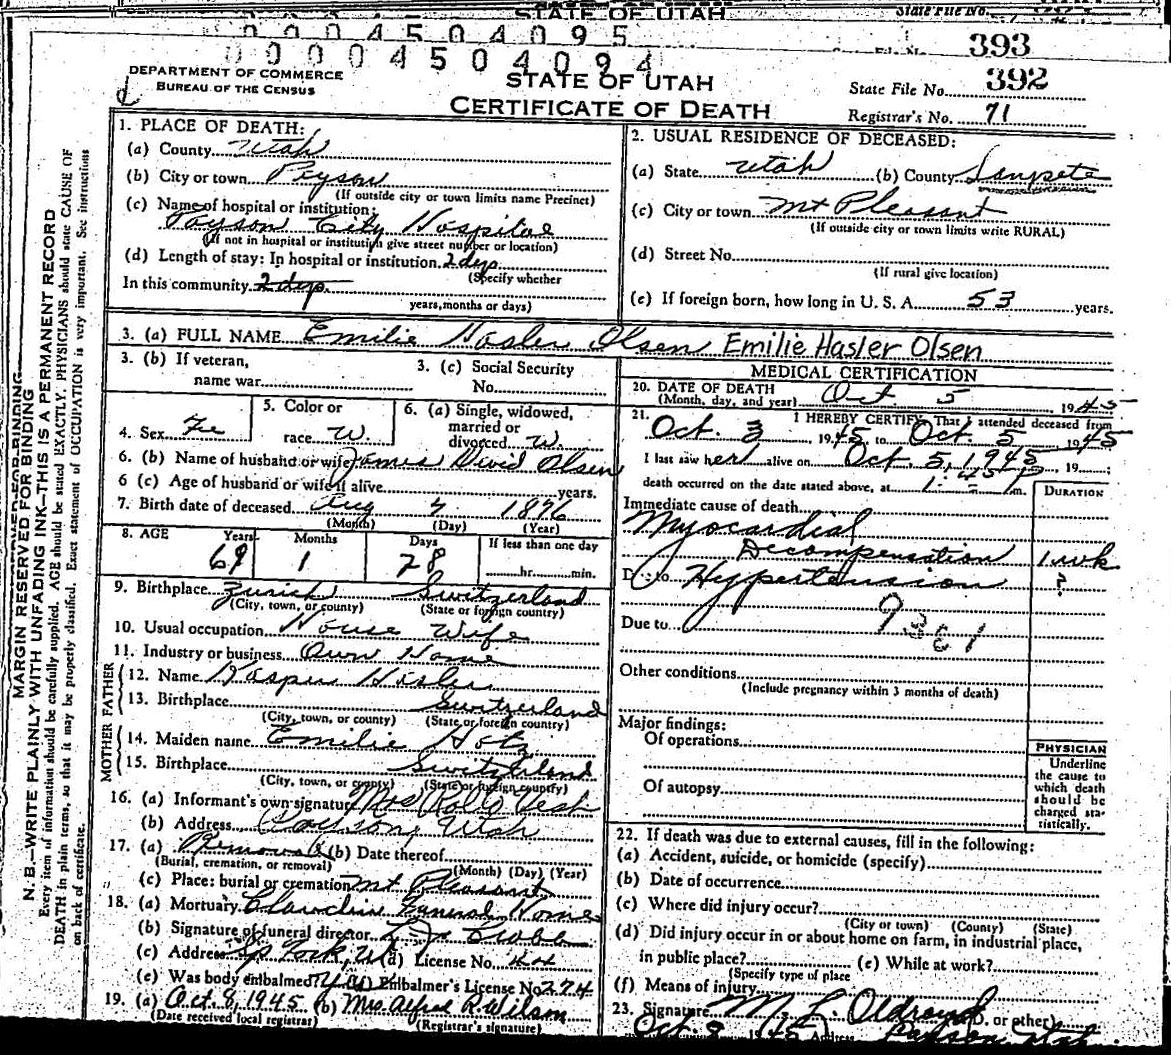 STATE OF UTAH
State File No.
0 0 0 4 5 0 4 0 9 5
393
0 0 0 0 4 5 0 4 0 9 4
DEPARTMENT OF COMMERCE
BUREAU OF THE CENSUS
STATE OF UTAH
CERTIFICATE OF DEATH
State File No. 392
Registrar's No. 71
MARGIN RESERVED FOR BINDING
N. B.—WRITE PLAINLY WITH UNFADING INK—THIS IS A PERMANENT RECORD
Every item of information should be carefully supplied. AGE should be stated EXACTLY. PHYSICIANS should state CAUSE OF
DEATH in plain terms, so that it may be properly classified. Exact statement of OCCUPATION is very important. See instructions
on back of certificate.
1. PLACE OF DEATH:
(a) County Utah
(b) City or town Payson
(If outside city or town limits name Precinct)
(c) Name of hospital or institution:
Payson City Hospital
(If not in hospital or institution give street number or location)
(d) Length of stay: In hospital or institution 2 days
(Specify whether
In this community 2 days
years, months or days)
2. USUAL RESIDENCE OF DECEASED:
(a) State Utah (b) County Sanpete
(c) City or town Mt Pleasant
(If outside city or town limits write RURAL)
(d) Street No.
(If rural give location)
(e) If foreign born, how long in U. S. A. 53 years.
3. (a) FULL NAME Emilie Hasler Olsen Emilie Hasler Olsen
3. (b) If veteran,
name war
3. (c) Social Security
No.
4. Sex Fe
5. Color or
race W.
6. (a) Single, widowed,
married or
divorced W.
6. (b) Name of husband or wife James David Olsen
6 (c) Age of husband or wife if alive years.
7. Birth date of deceased Aug 7 1876
(Month) (Day) (Year)
8. AGE Years Months Days If less than one day
69 1 28 hr. min.
9. Birthplace Zurich Switzerland
(City, town, or county) (State or foreign country)
10. Usual occupation House Wife
11. Industry or business Own Home
FATHER
12. Name Kasper Hasler
13. Birthplace Switzerland
(City, town, or county) (State or foreign country)
MOTHER
14. Maiden name Emilie Hotz
15. Birthplace Switzerland
(City, town, or county) (State or foreign country)
16. (a) Informant's own signature Mrs Rollo
(b) Address Payson, Utah
17. (a) Removal (b) Date thereof
(Burial, cremation, or removal) (Month) (Day) (Year)
(c) Place: burial or cremation Mt Pleasant
18. (a) Mortuary Claudin Funeral Home
(b) Signature of funeral director
(c) Address Sp Fork, Ut (d) License No. 44
(e) Was body embalmed? Embalmer's License No 274
19. (a) Oct. 8, 1945 (b) Mrs. Alfred R. Wilson
(Date received local registrar) (Registrar's signature)
MEDICAL CERTIFICATION
20. DATE OF DEATH Oct 5 1945
(Month, day, and year)
21. I HEREBY CERTIFY, That I attended deceased from
Oct. 3 1945 to Oct. 5 1945
I last saw her alive on Oct. 5, 1945, 19
death occurred on the date stated above, at 1:45 P m.
DURATION
Immediate cause of death
Myocardial
Decompensation 1 wk
Due to Hypertension ?
Due to
Other conditions
(Include pregnancy within 3 months of death)
Major findings:
Of operations
Of autopsy
PHYSICIAN
Underline
the cause to
which death
should be
charged sta-
tistically.
22. If death was due to external causes, fill in the following:
(a) Accident, suicide, or homicide (specify)
(b) Date of occurrence
(c) Where did injury occur?
(City or town) (County) (State)
(d) Did injury occur in or about home on farm, in industrial place,
in public place? (e) While at work?
(Specify type of place
(f) Means of injury
23. Signature M. L. Oldroyd (M.D. or other)
Oct. 8 1945 Address Payson, Utah